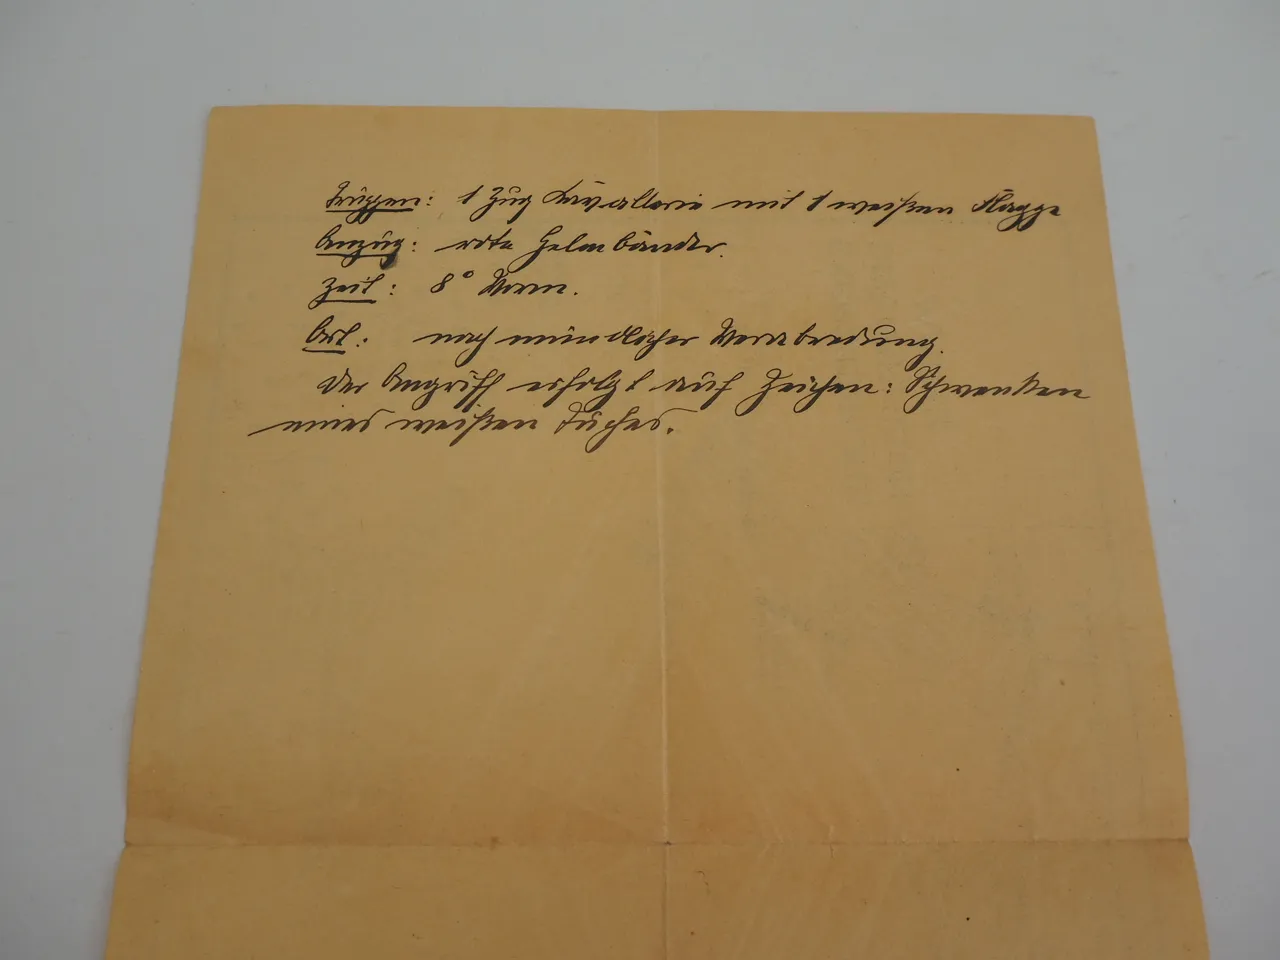 Truppen: 1 Zug Kavallerie mit 1 weißen Flagge
Anzug: rote Helmbänder.
Zeit: 8° Vorm.
Ort: nach mündlicher Verabredung.
Der Angriff erfolgt auf Zeichen: Schwenken
eines weißen Tuches.